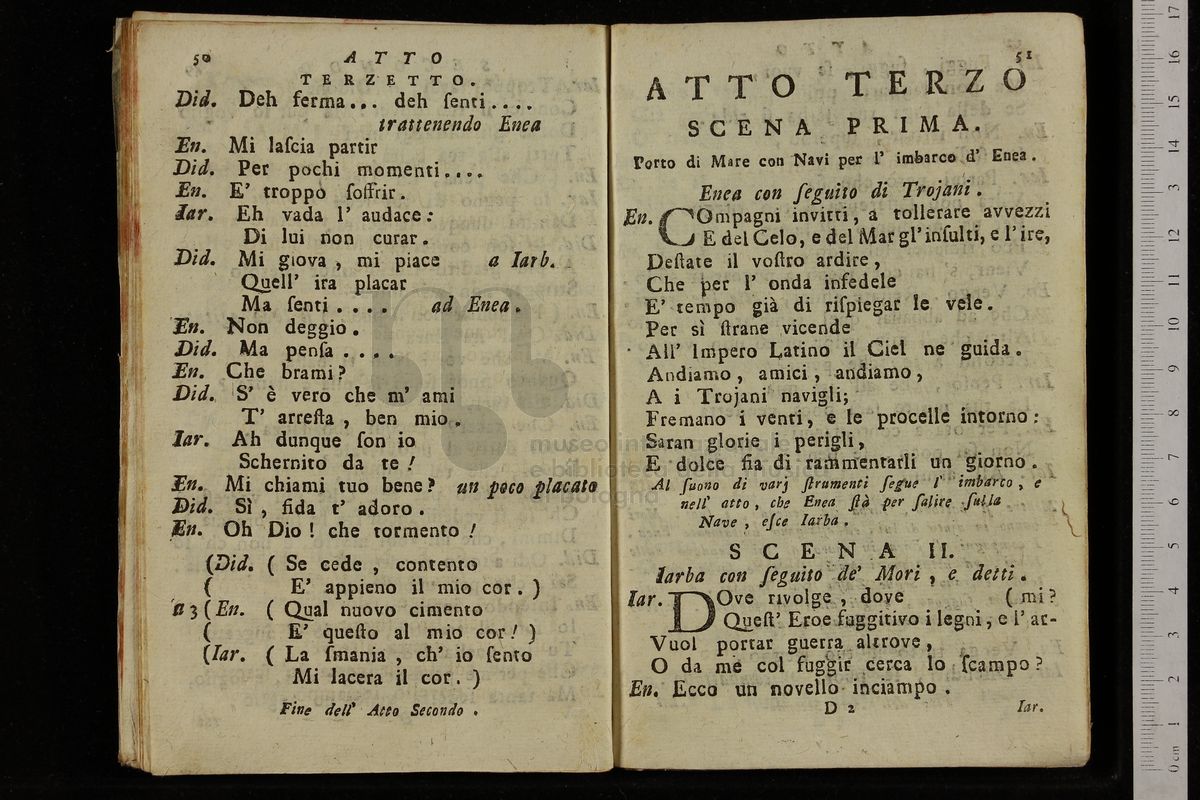 50
ATTO
TERZETTO.
Did. Deh ferma... deh ſenti....
trattenendo Enea
En. Mi laſcia partir
Did. Per pochi momenti....
En. E' troppo ſoffrir.
Iar. Eh vada l' audace:
Di lui non curar.
Did. Mi giova, mi piace a Iarb.
Quell' ira placar
Ma ſenti.... ad Enea.
En. Non deggio.
Did. Ma penſa....
En. Che brami?
Did. S' è vero che m' ami
T' arreſta, ben mio.
Iar. Ah dunque ſon io
Schernito da te!
En. Mi chiami tuo bene? un poco placato
Did. Sì, fida t' adoro.
En. Oh Dio! che tormento!
(Did. ( Se cede, contento
( E' appieno il mio cor. )
a 3 (En. ( Qual nuovo cimento
( E' queſto al mio cor! )
(Iar. ( La ſmania, ch' io ſento
Mi lacera il cor. )
Fine dell' Atto Secondo.
51
ATTO TERZO
SCENA PRIMA.
Porto di Mare con Navi per l' imbarco d' Enea.
Enea con ſeguito di Trojani.
En. COmpagni invitti, a tollerare avvezzi
E del Celo, e del Mar gl' inſulti, e l' ire,
Deſtate il voſtro ardire,
Che per l' onda infedele
E' tempo già di riſpiegar le vele.
Per sì ſtrane vicende
All' Impero Latino il Ciel ne guida.
Andiamo, amici, andiamo,
A i Trojani navigli;
Fremano i venti, e le procelle intorno:
Saran glorie i perigli,
E dolce fia di rammentarli un giorno.
Al ſuono di varj ſtrumenti ſegue l' imbarco, e
nell' atto, che Enea ſtà per ſalire ſulla
Nave, eſce Iarba.
SCENA II.
Iarba con ſeguito de' Mori, e detti.
Iar. DOve rivolge, dove ( mi?
Queſt' Eroe fuggitivo i legni, e l' ar-
Vuol portar guerra altrove,
O da me col fuggir cerca lo ſcampo?
En. Ecco un novello inciampo.
D 2 Iar.